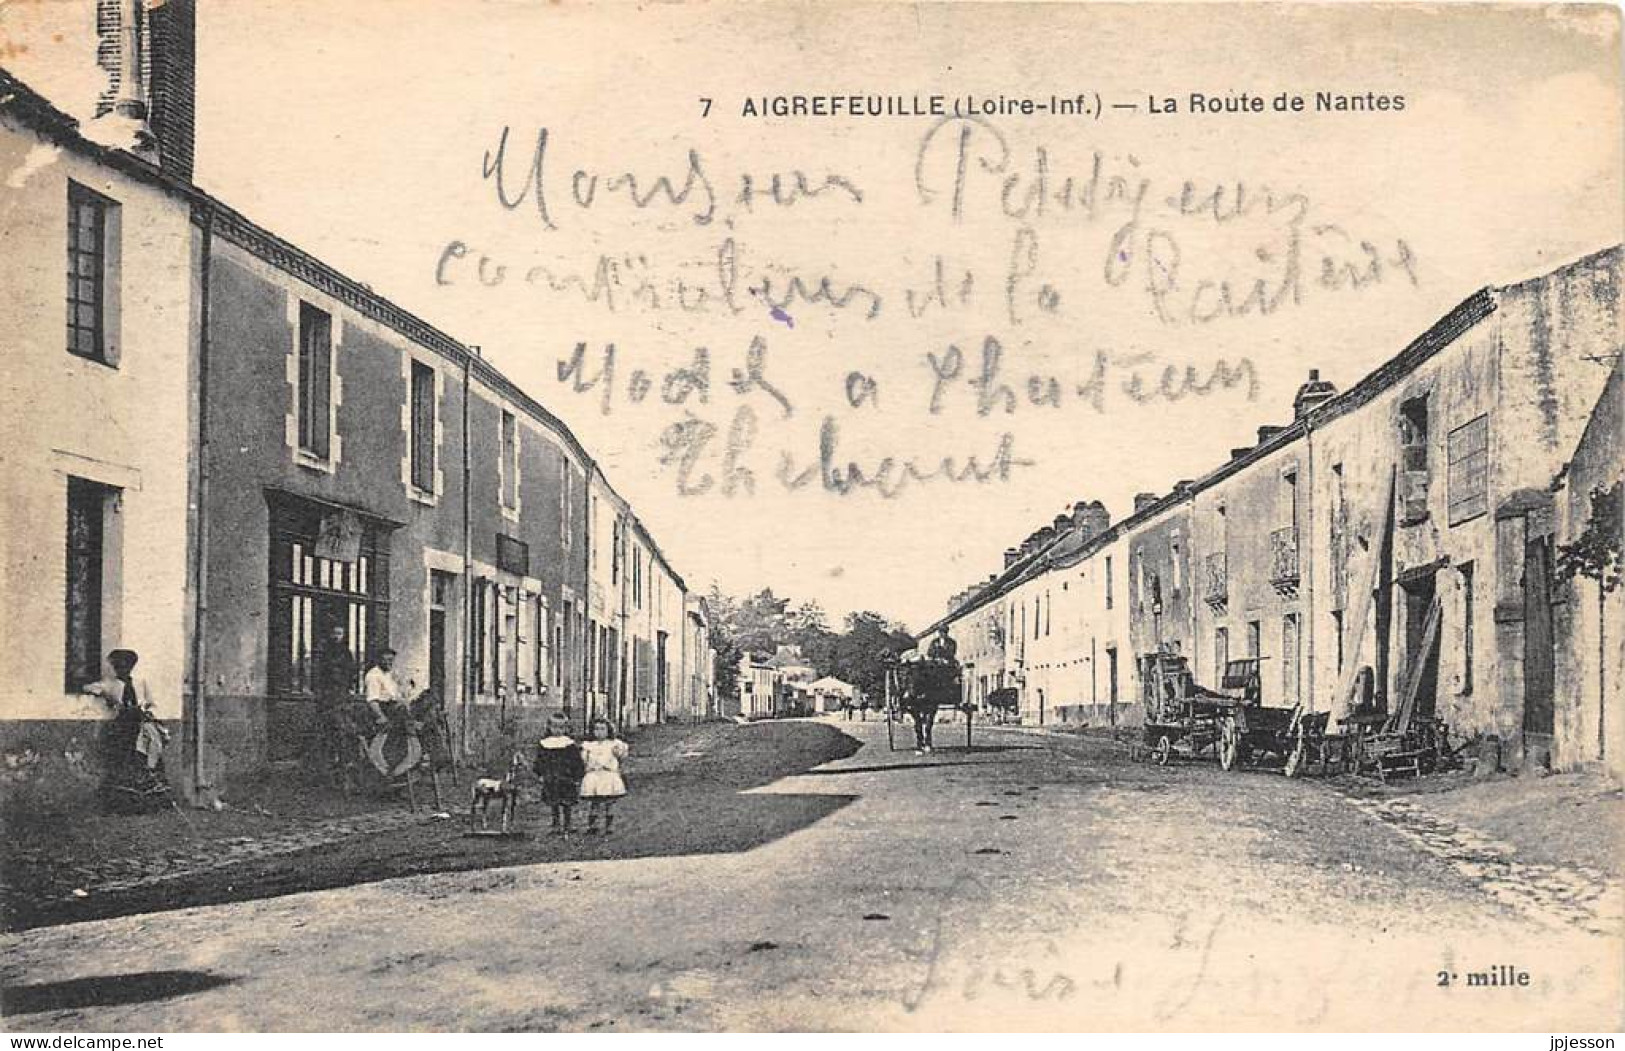 7 AIGREFEUILLE (Loire-Inf.) — La Route de Nantes
Monsieur
de la Laiterie
Model a Chateau
Thebaut
Loire Inf
2e mille
www.delcampe.net
jpjesson